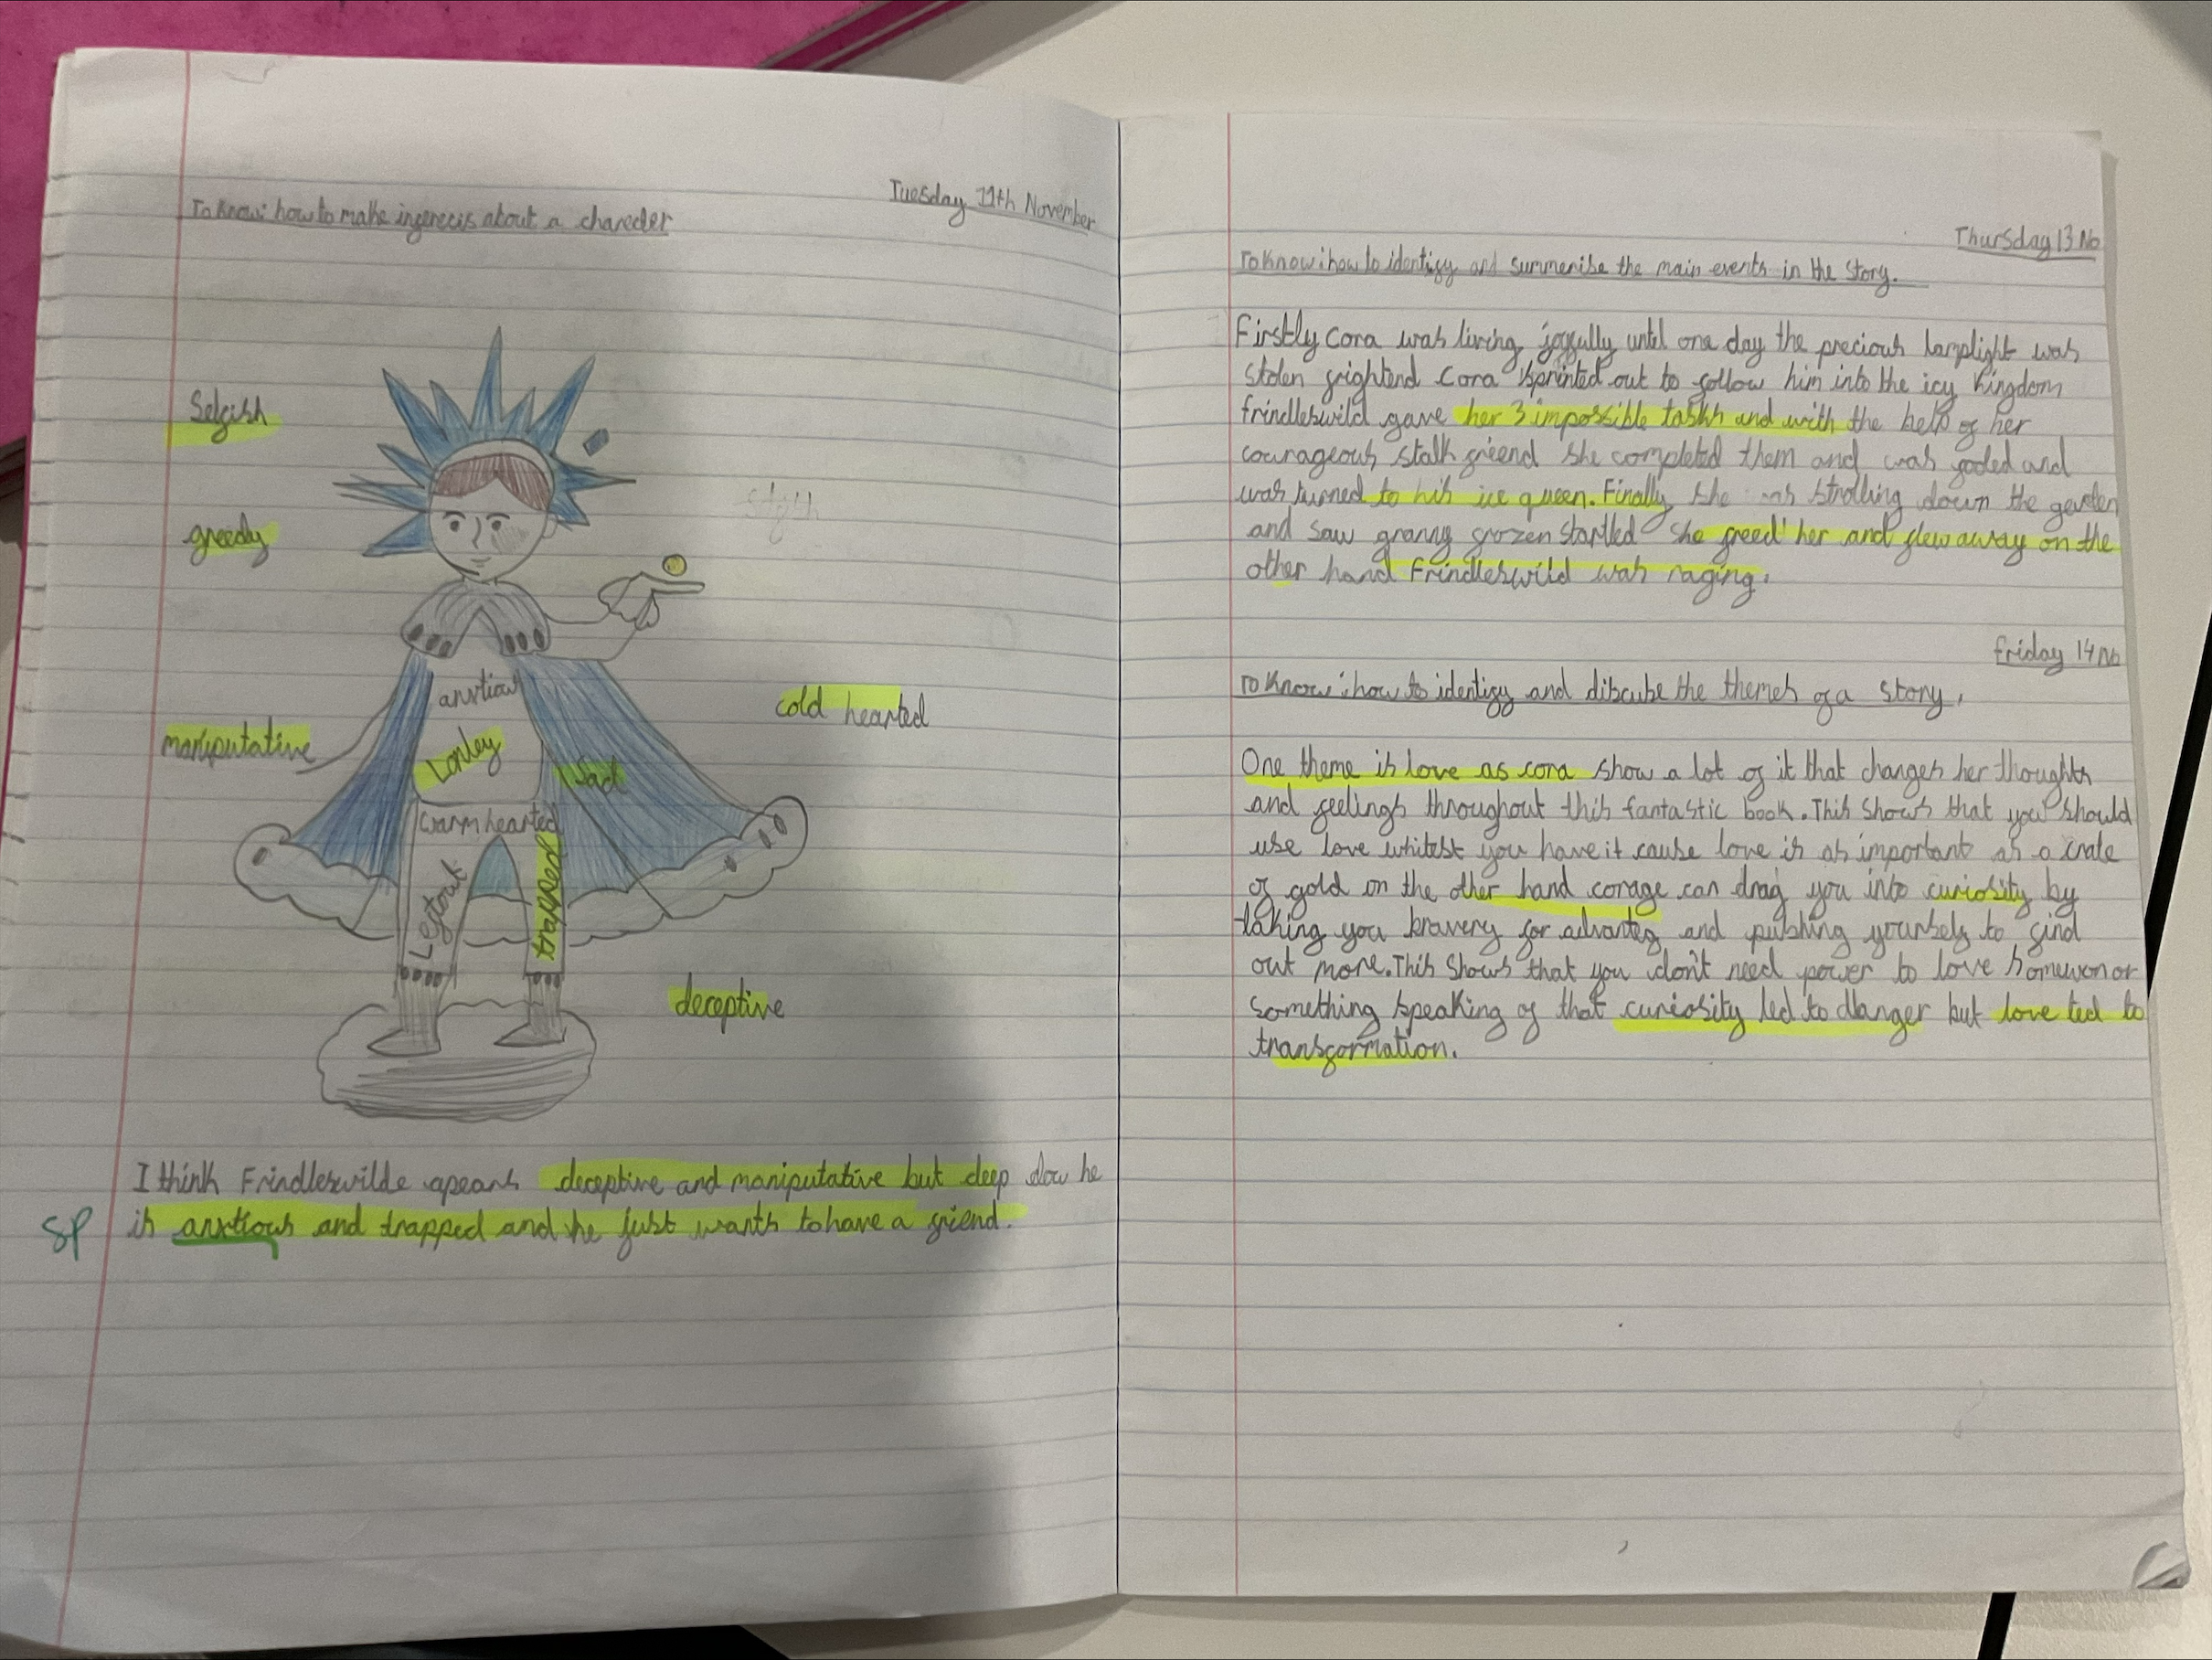 Tuesday 11th November
To know: how to make ingerecis about a charecter
Selfish
greedy
manipulative
cold hearted
deceptive
anxtious
Lonley
Sad
warm hearted
Left out
trapped
I think Frindleswilde apears deceptive and manipulative but deep dow he
SP
is anxtious and trapped and he just wants to have a friend.
Thursday 13 No
To know: how to identify and summerise the main events in the story.
Firstly Cora was living joyfully until one day the precious lamplight was
stolen frightend Cora sprinted out to follow him into the icy kingdom
frindleswild gave her 3 impossible tasks and with the help of her
courageous stalk friend she completed them and was fooled and
was turned to his ice queen. Finally she was strolling down the garden
and saw granny frozen startled she freed her and flew away on the
other hand Frindleswild was raging.
Friday 14 No
To know: how to identify and discuse the themes of a story.
One theme is love as cora show a lot of it that changes her thoughts
and feelings throughout this fantastic book. This shows that you should
use love whitest you have it cause love is as important as a crate
of gold on the other hand corage can drag you into curiosity by
taking you bravery for advanteg and pushing yourself to find
out more. This shows that you don't need power to love someweon or
something speaking of that curiosity led to danger but love led to
transformation.